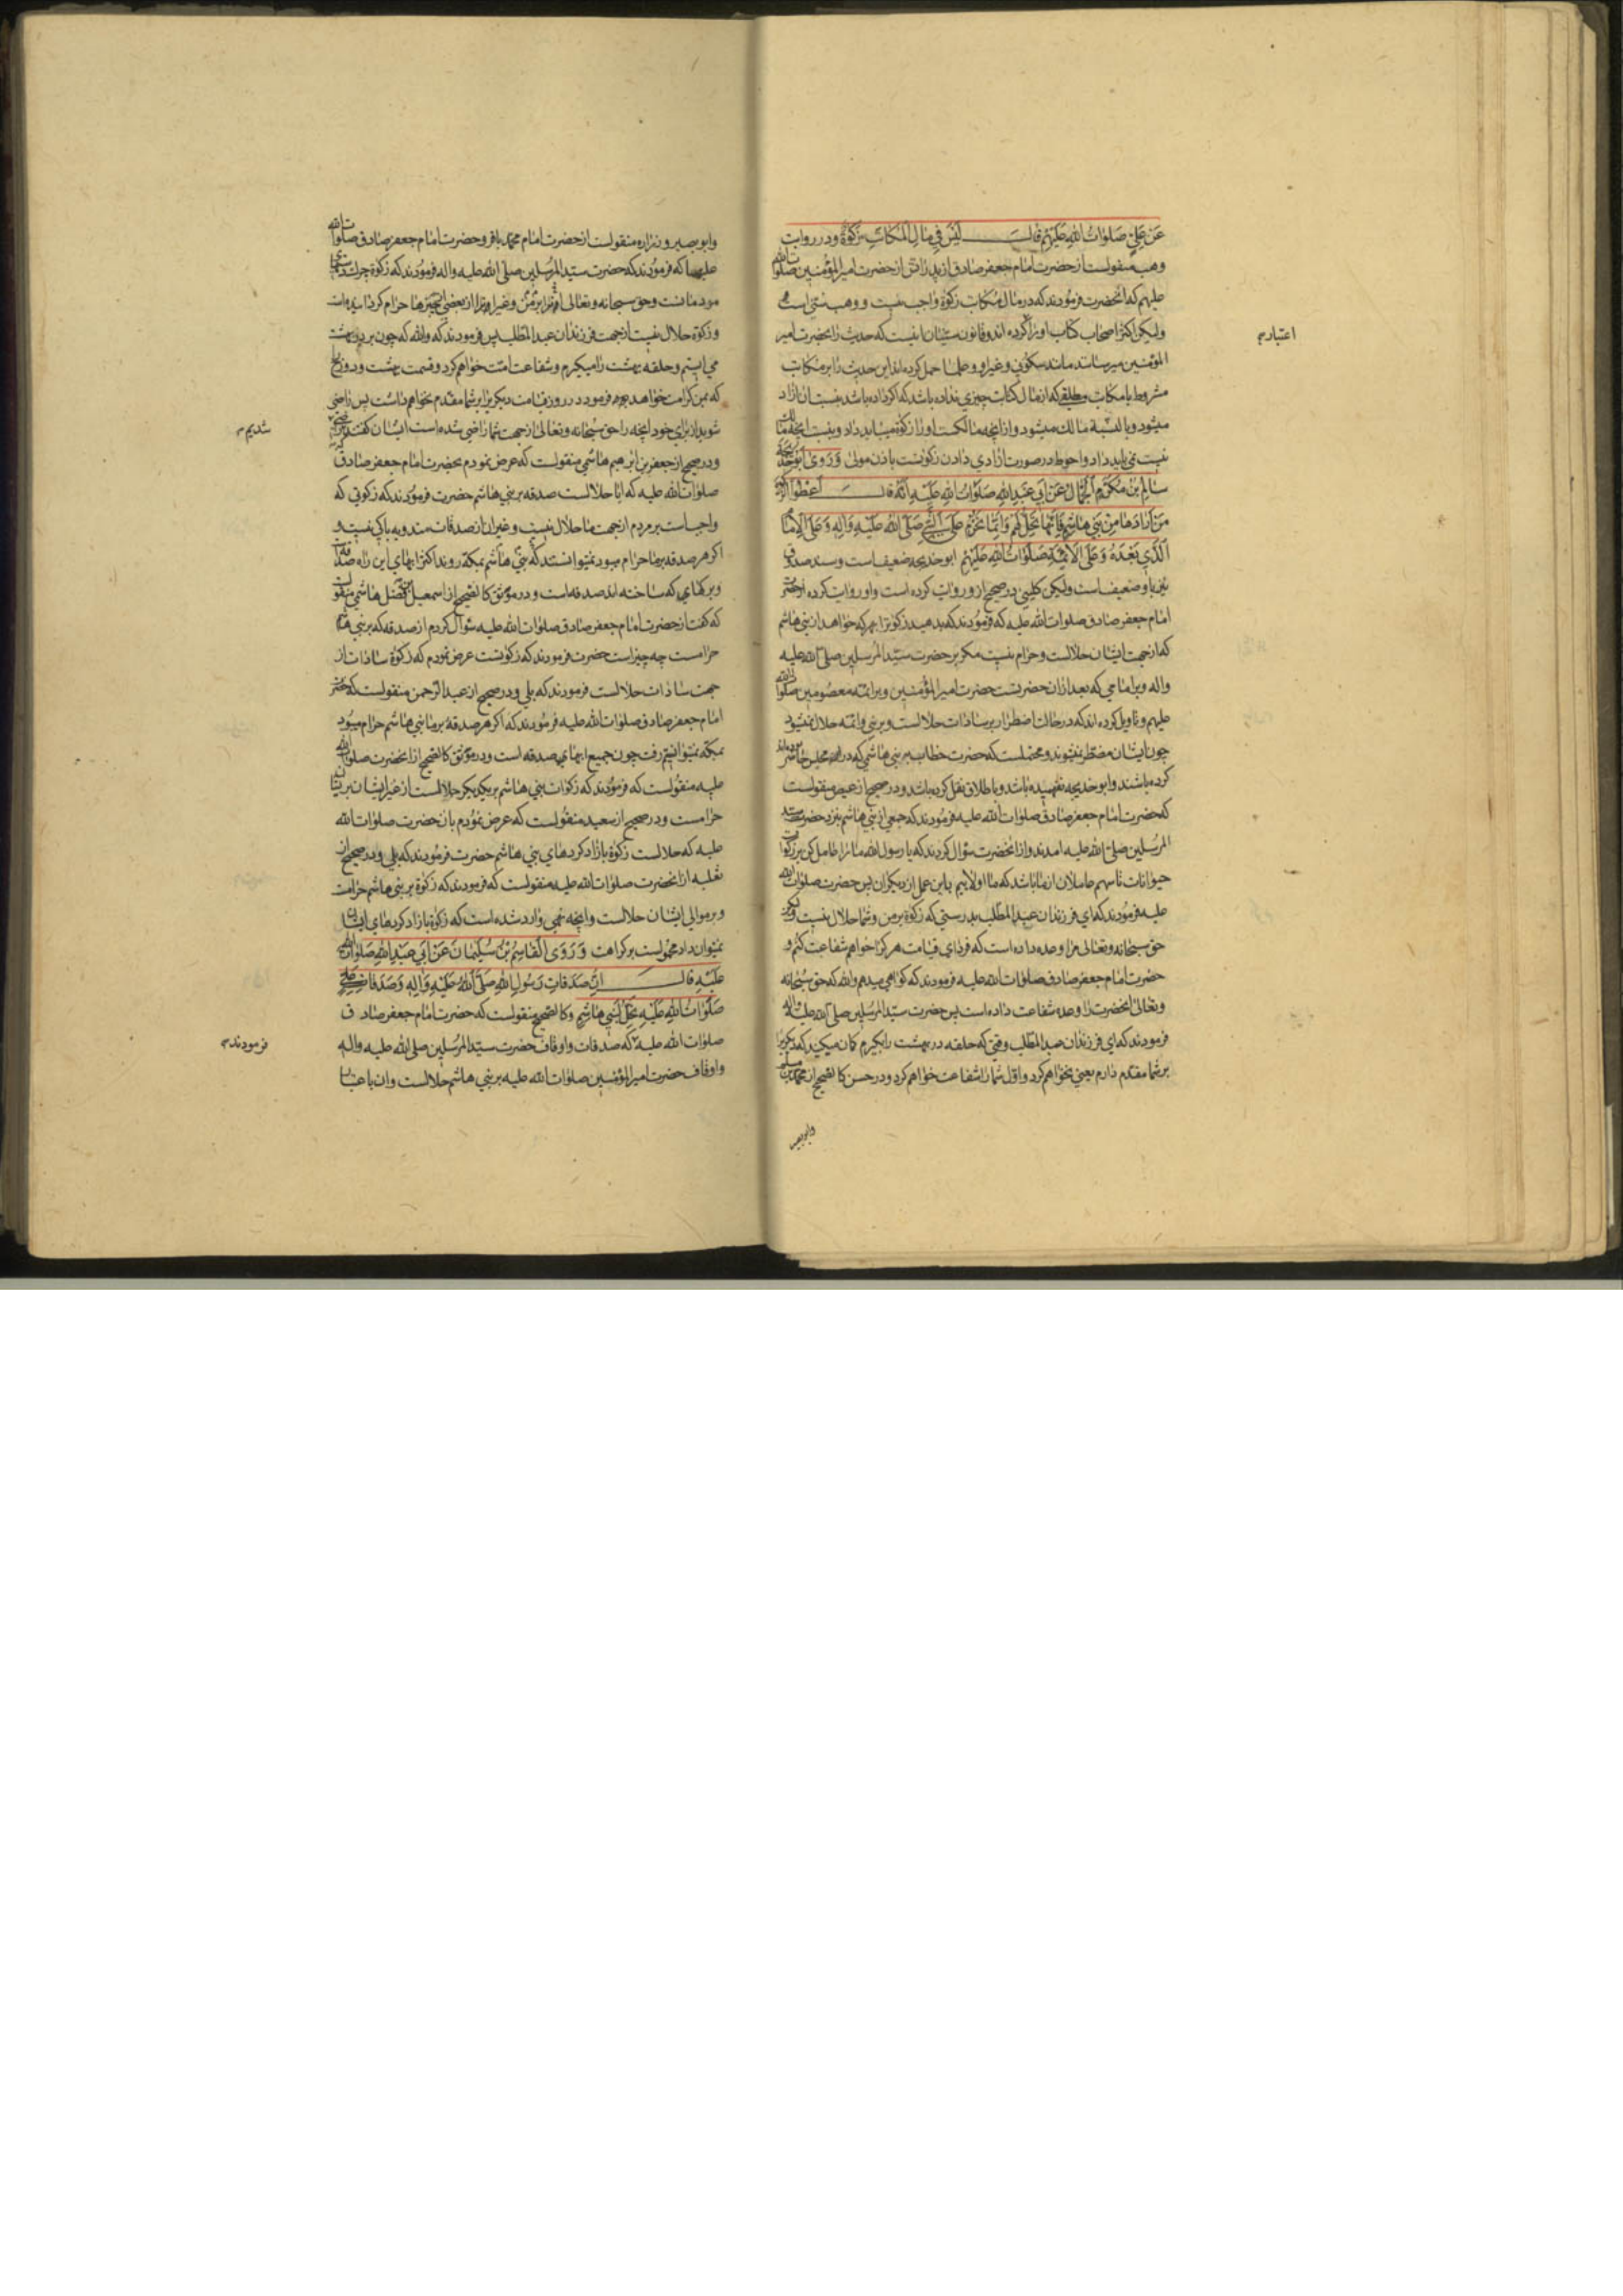 عَن عَلِيٍّ صَلَوٰاتُ اللّٰهِ عَلَيْهِمْ قالَ لَيْسَ فِي مٰالِ الْمُكٰاتَبِ زَكوٰةٌ ودر روایت
وهب منقولست از حضرت امام جعفر صادق از پدرانش از حضرت امیر المؤمنین صلوات الله
علیهم که انحضرت فرمودند که در مال مکاتب زکوة واجب نیست و وهب سنی است
ولیکن اکثر اصحاب کتاب او را کرده اند و قانون سنیان انیست که حدیث را بحضرت امیر
اعتبار
المؤمنین میرسانند مانند سکونی و غیر او و علما حمل کرده اند این حدیث را بر مکاتب
مشروط یا مکاتب مطلقی که از مال کتابت چیزی نداده باشد که اگر داده باشد بنسبت ان ازاد
میشود و بالنسبة مالک میشود و از انچه مالکست او را زکوة میباید داد و بنسبت انچه مالک
نیست نمی باید داد و احوط در صورت ازادی دادن زکوتست باذن مولی وَرَوىٰ اَبُو خَدِيجَةَ
سٰالِمُ بْنُ مُكْرَمٍ الْجَمّٰالُ عَنْ اَبي عَبْدِ اللّٰهِ صَلَوٰاتُ اللّٰهِ عَلَيْهِ اَنَّهُ قالَ اَعْطُوا الزَّكوٰةَ
مَنْ اَرٰادَهٰا مِنْ بَني هٰاشِمٍ فَاِنَّهٰا تَحِلُّ لَهُمْ وَاِنَّمٰا تَحْرُمُ عَلَى النَّبِيِّ صَلَّى اللّٰهُ عَلَيْهِ وَاٰلِهِ وَعَلَى الْاِمٰامِ
الَّذي بَعْدَهُ وَعَلَى الْاَئِمَّةِ صَلَوٰاتُ اللّٰهِ عَلَيْهِمْ ابو خدیجه ضعیف است و سند صدوق
نیز باو ضعیف است ولیکن کلینی در صحیح از و روایت کرده است و او روایت کرده از حضرت
امام جعفر صادق صلوات الله علیه که فرمودند که بدهید زکوة را بهر که خواهد از بنی هاشم
که از جهت ایشان حلالست و حرام نیست مگر بر حضرت سید المرسلین صلی الله علیه
واله و بر امامی که بعد از ان حضرتست حضرت امیر المؤمنین و بر ائمه معصومین صلوات الله
علیهم و تاویل کرده اند که در حالت اضطرار بر سادات حلالست و بر نبی و ائمه حلال نمیشود
چون ایشان مضطر نمیشوند و محتملست که حضرت خطاب ببنی هاشمی که در ان مجلس حاضر بوده اند
کرده باشند و ابو خدیجه نفهمیده باشد و باطلاق نقل کرده باشد و در صحیح از عیص منقولست
که حضرت امام جعفر صادق صلوات الله علیه فرمودند که جمعی از بنی هاشم بنزد حضرت سید
المرسلین صلی الله علیه امدند و از انحضرت سؤال کردند که یا رسول الله ما را عامل کن بر زکوات
حیوانات تا سهم عاملان از ما باشد که ما اولاییم باین عمل از دیگران پس حضرت صلوات الله
علیه فرمودند که ای فرزندان عبد المطلب بدرستی که زکوة بر من و شما حلال نیست ولیکن
حق سبحانه و تعالی مرا وعده داده است که فردای قیامت هر که را خواهم شفاعت کنم و
حضرت امام جعفر صادق صلوات الله علیه فرمودند که گواهی میدهم والله که حق سبحانه
و تعالی انحضرت را وعده شفاعت داده است پس حضرت سید المرسلین صلی الله علیه واله
فرمودند که ای فرزندان عبد المطلب وقتی که حلقه در بهشت را بگیرم گمان میکنید که دیگریرا
بر شما مقدم دارم یعنی نخواهم کرد و اول شما را شفاعت خواهم کرد و در حسن کالصحیح از محمد بن مسلم
وابو بصیر
وابو بصیر و زراره منقولست از حضرت امام محمد باقر و حضرت امام جعفر صادق صلوات الله
علیهما که فرمودند که حضرت سید المرسلین صلی الله علیه واله فرمودند که زکوة چرک
مردمانست و حق سبحانه و تعالی از برمن و غیر او را از بعضی چیزها حرام گردانیده است
و زکوة حلال نیست از جهت فرزندان عبد المطلب پس فرمودند که والله که چون بر در بهشت
می ایستم و حلقه بهشت را میگیرم و شفاعت امت خواهم کرد و قسمت بهشت و دوزخ
که بمن کرامت خواهد بود فرمود در روز قیامت دیگریرا بر شما مقدم نخواهم داشت پس راضی
شوید از برای خود انچه را حق سبحانه و تعالی از جهت شما راضی شده است ایشان گفتند که راضی
شدیم
و در صحیح از جعفر بن ابرهیم هاشمی منقولست که عرض نمودم بحضرت امام جعفر صادق
صلوات الله علیه که ایا حلالست صدقه بر بنی هاشم حضرت فرمودند که زکوتی که
واجب است بر مردم از جهت ما حلال نیست و غیر ان از صدقات مندوبه باکی نیست و
اگر هر صدقه بر ما حرام میبود نمیتوانستند که بنی هاشم بمکه روند اکثر ابهای این راه صدقه
و برکهای که ساخته اند صدقه است و در موثق کالصحیح از اسمعیل بن فضل هاشمی منقولست
که گفت از حضرت امام جعفر صادق صلوات الله علیه سؤال کردم از صدقه که بر بنی هاشم
حرامست چه چیز است حضرت فرمودند که زکوتست عرض نمودم که زکوة سادات از
جهت سادات حلالست فرمودند که بلی و در صحیح از عبد الرحمن منقولست که حضرت
امام جعفر صادق صلوات الله علیه فرمودند که اگر هر صدقه بر ما بنی هاشم حرام میبود
بمکه نمیتوانستیم رفت چون جمیع ابهای صدقه است و در موثق کالصحیح از انحضرت صلوات الله
علیه منقولست که فرمودند که زکوات بنی هاشم بر یکدیگر حلالست از غیر ایشان بر ایشان
حرامست و در صحیح از سعید منقولست که عرض نمودم بان حضرت صلوات الله
علیه که حلالست زکوة بازاد کردهای بنی هاشم حضرت فرمودند که بلی و در صحیح از
ثعلبه از انحضرت صلوات الله علیه منقولست که فرمودند که زکوة بر بنی هاشم حرامست
و بر موالی ایشان حلالست و انچه نهی وارد شده است که زکوة بازاد کردهای ایشان
نمیتوان داد محمولست بر کراهت وَرَوَى الْقٰاسِمُ بْنُ سُلَيْمٰانَ عَنْ اَبي عَبْدِ اللّٰهِ صَلَوٰاتُ اللّٰهِ
عَلَيْهِ قالَ اِنَّ صَدَقٰاتِ رَسُولِ اللّٰهِ صَلَّى اللّٰهُ عَلَيْهِ وَاٰلِهِ وَصَدَقٰاتِ عَلِيٍّ
صَلَوٰاتُ اللّٰهِ عَلَيْهِ تَحِلُّ لِبَني هٰاشِمٍ و کالصحیح منقولست که حضرت امام جعفر صادق
صلوات الله علیه که صدقات و اوقاف حضرت سید المرسلین صلی الله علیه واله
فرمودند
و اوقاف حضرت امیر المؤمنین صلوات الله علیه بر بنی هاشم حلالست و ان باعتبار